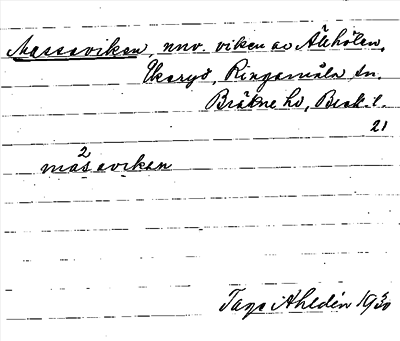 Massaviken, nnv. viken av Åkhölen,
Ekeryd, Ringamåla sn.
Bräkne hd, Blek. l.
21
2
masaviken
Tage Ahldén 1930